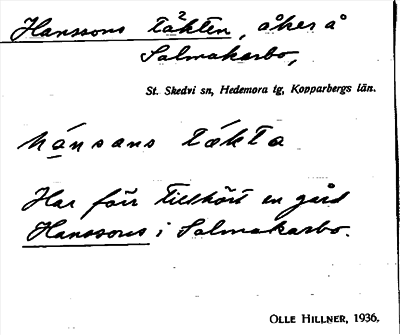 Hanssons täkten, åker å
Salmakarbo,
St. Skedvi sn, Hedemora tg, Kopparbergs län.
hánsans tákta
Har förr tillhört en gård
Hanssons i Salmakarbo.
OLLE HILLNER, 1936.